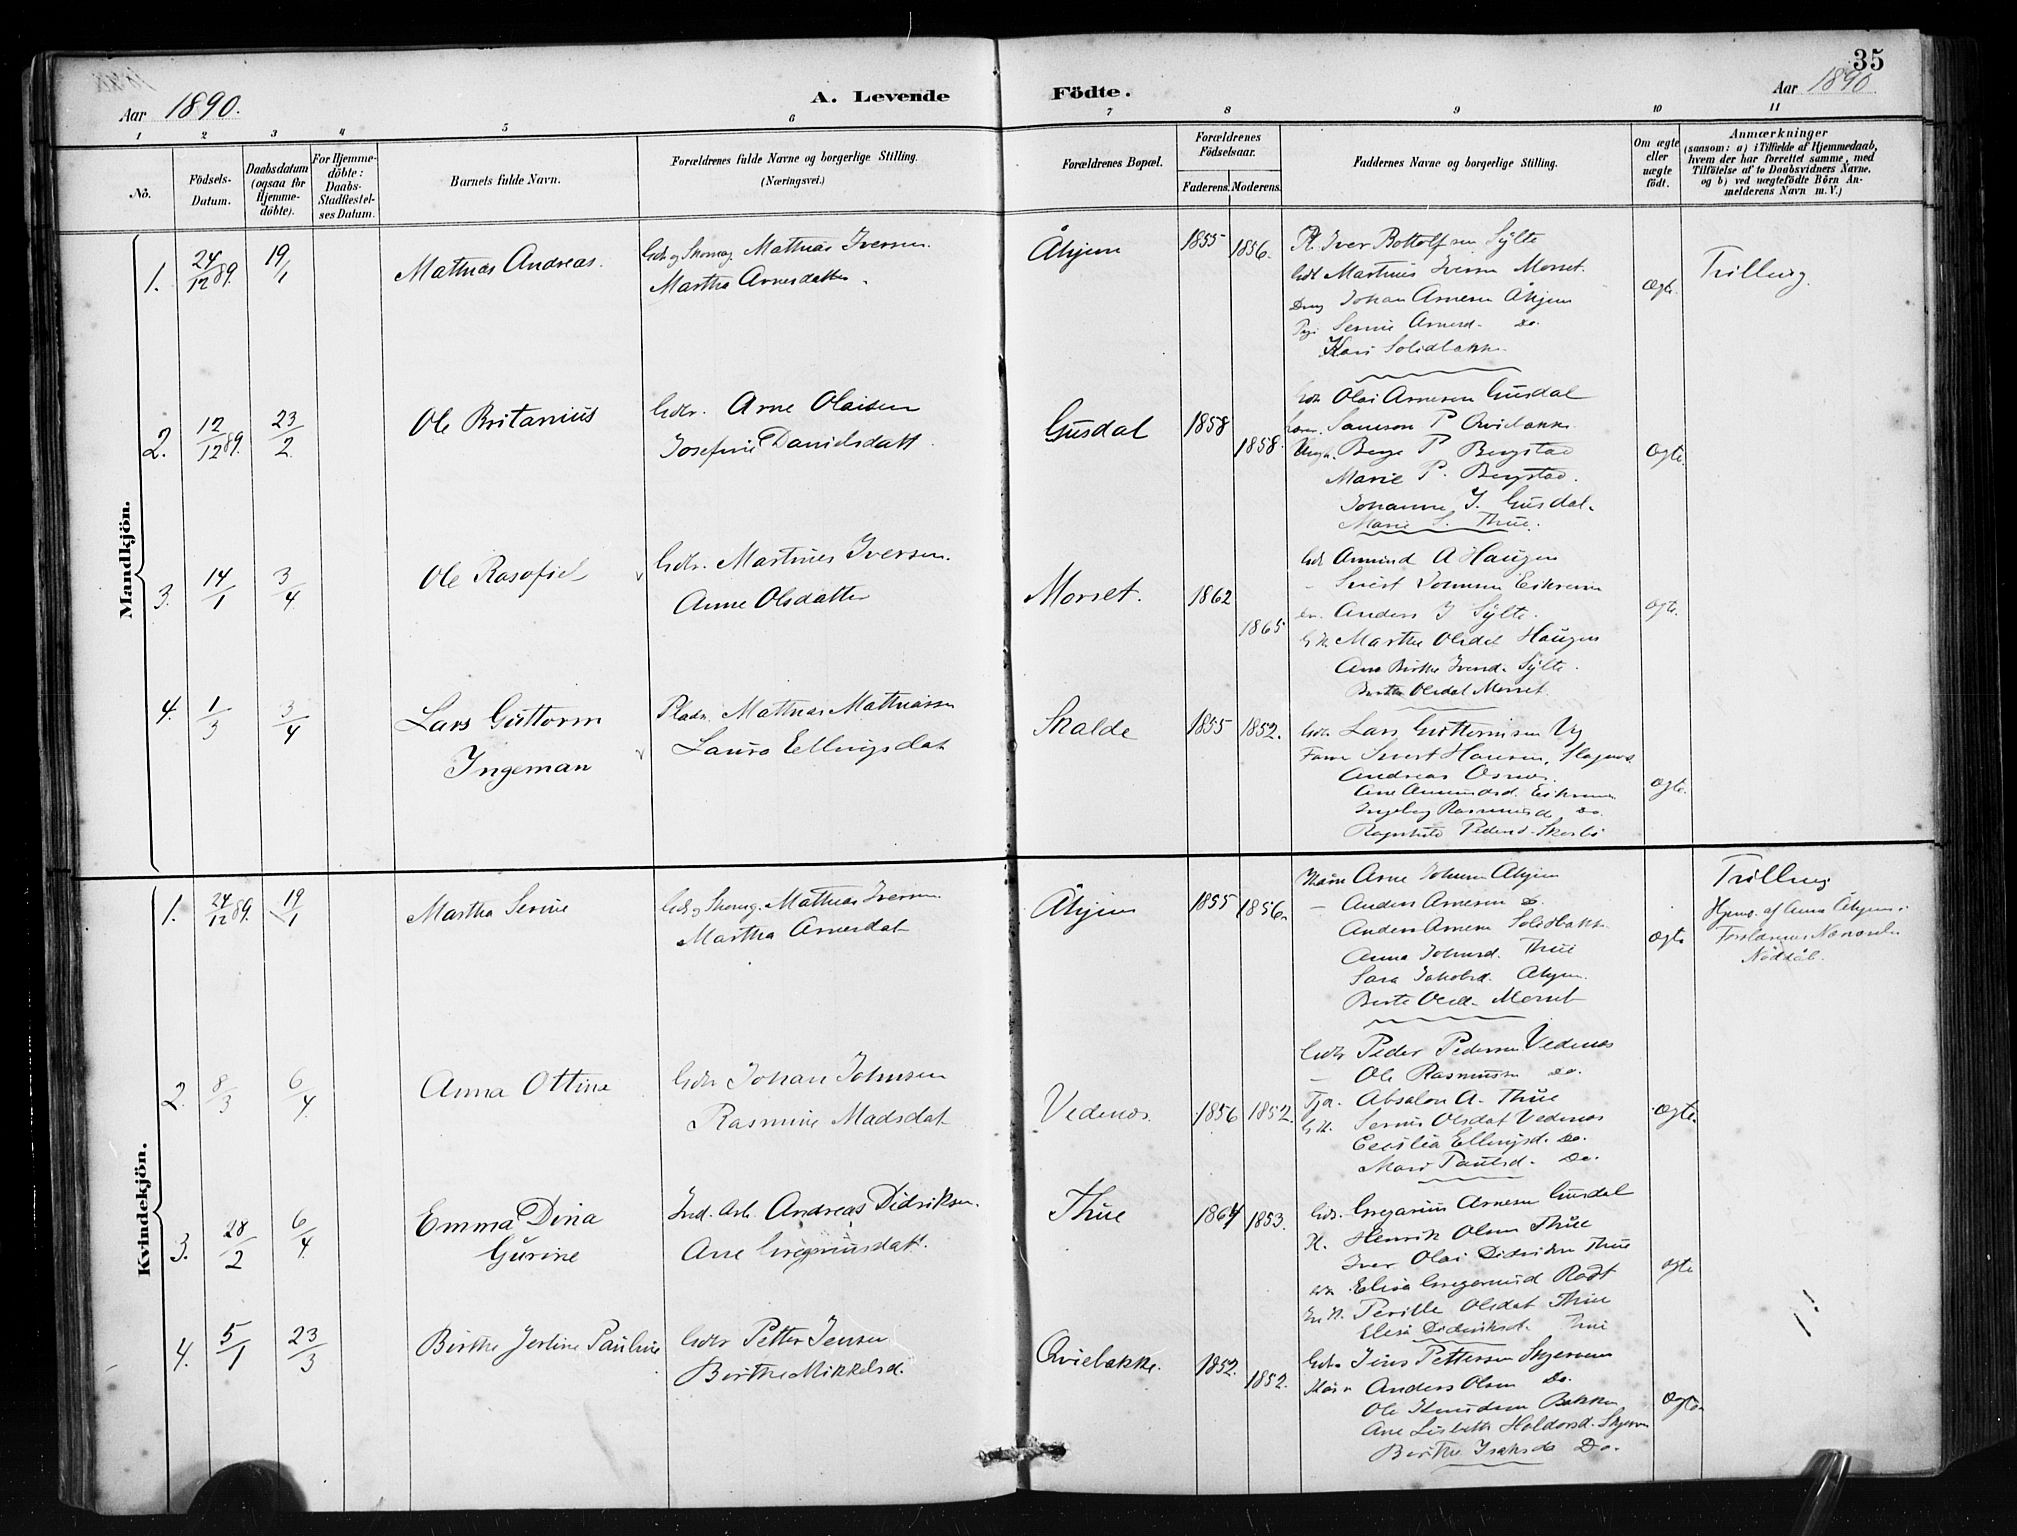 35
Aar 1890.
A. Levende Födte.
Aar 1890.
1 2 3 4 5 6 7 8 9 10 11
Nó.
Födsels-Datum.
Daabsdatum (ogsaa for Hjemme-döbte).
For Hjemme-döbte: Daabs-Stadfæstel-ses Datum.
Barnets fulde Navn.
Forældrenes fulde Navne og borgerlige Stilling. (Næringsvei.)
Forældrenes Bopæl.
Forældrenes Födselsaar.
Faderens. Moderens.
Faddernes Navne og borgerlige Stilling.
Om ægte eller uægte födt.
Anmærkninger
(saasom: a) i Tilfælde af Hjemmedaab, hvem der har forrettet samme, med Tilföielse af to Daabsvidners Navne, og b) ved uægtefödte Börn An-melderens Navn m. V.)
Mandkjön.
1. 24/12 89. 19/1 Mathias Andreas.
Gdr og Skomag. Mathias Iversen.
Martha Arnesdatter.
Åhjem 1855 1856.
Pl. Iver Bottolfsen Sylte
Gdr Martinus Iversen Morset.
Drg Johan Arnesen Åhjem
Pige Serine Arnesd. Do.
Kari Solidbakk
Ægte. Trilling.
2. 12/12 89. 23/2 Ole Britanius
Gdr. Arne Olaisen
Josefine Danielsdatt.
Gusdal 1858 1858.
Gdr Olai Arnesen Gusdal
Samson P Qviebakk
Unga. Berge P Bergstad
Marie P. Bergstad.
Johanne J. Gusdal.
Marie S. Thue.
Ægte.
3. 14/1 3/4 Ole Rasofiel
Gdr. Martinus Iversen.
Anne Olsdatter
Morset. 1862 1865
Gdr Amund A Haugen
Sivert Johnsen Eikrem
Anders J Sylte.
Marthe Olsdat Haugen
Ane Birthe Iversd. Sylte.
Birthe Olsdat Morset.
Ægte.
4. 1/3 3/4 Lars Guttorm
Ingeman
Pladr. Mathias Mathiassen
Laura Ellingsdat
Skalde 1855 1852.
Gdr. Lars Guttormsen Vg
Sivert Hansen,
Andreas Osnes.
Ane Amundsd. Eikrem
Ingeborg Rasmusd. Do.
Ragnhild Pedersd. Skorbø
Ægte.
Kvindekjön.
1. 24/12 89. 19/1 Martha Serine
Gdr og Skomag. Mathias Iversen
Martha Arnesdat
Åhjem 1855 1856.
Arne Johnsen Åhjem
– Anders Arnesen Do.
Anders Arnesen Solidbakk
Anna Johnsd. Thue
Sara Jakobsd. Åhjem.
Berte Olsd. Morset
Ægte
Trilling
Hjemd. af Anna Åhjem i
Forældrenes Nærværelse
Nöddåb.
2. 8/3 6/4 Anna Ottine
Gdr Johan Johnsen
Rasmine Madsdat
Vedenos. 1856 1852.
Gdr Peder Pedersen Vedenos
– Ole Rasmussen Do.
Tje. Absalon A. Thue
Serine Olsdat Vedenos
Cecilia Ellingsd. Do.
Mari Paulsd. Do.
Ægte.
3. 28/2 6/4 Emma Dina
Gurine
Ind. Arb. Andreas Didriksen.
Ane Gregoriusdatt.
Thue 1864 1853.
Gdr. Gregorius Arnesen Gusdal
Henrik Olsen Thue
Iver Olai Didriksen Thue
Elisa Gregoriusd Rødt
Pernille Olsdat Thue
Elisa Didriksd. Thue
Ægte
4. 5/1 23/3 Birthe Jertine Pauline
Gdr Petter Jensen
Birthe Mikkelsd.
Qviebakke. 1852. 1852.
Gdr Jens Pettersen Skjerven
Anders Olsen Do.
Ole Knudsen Bakken
Ane Lisbeth Haldorsd. Skjerven
Birthe Isaksd Do.
Ægte